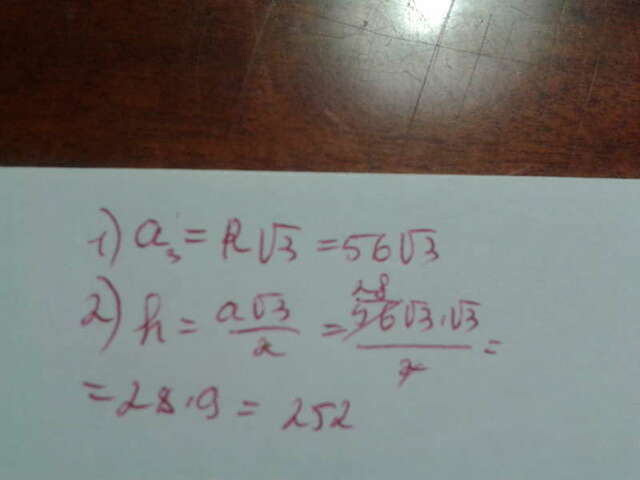 1) a₃ = R√3 = 56√3
2) h = a√3/2 = 28 56√3·√3/2 =
= 28·9 = 252